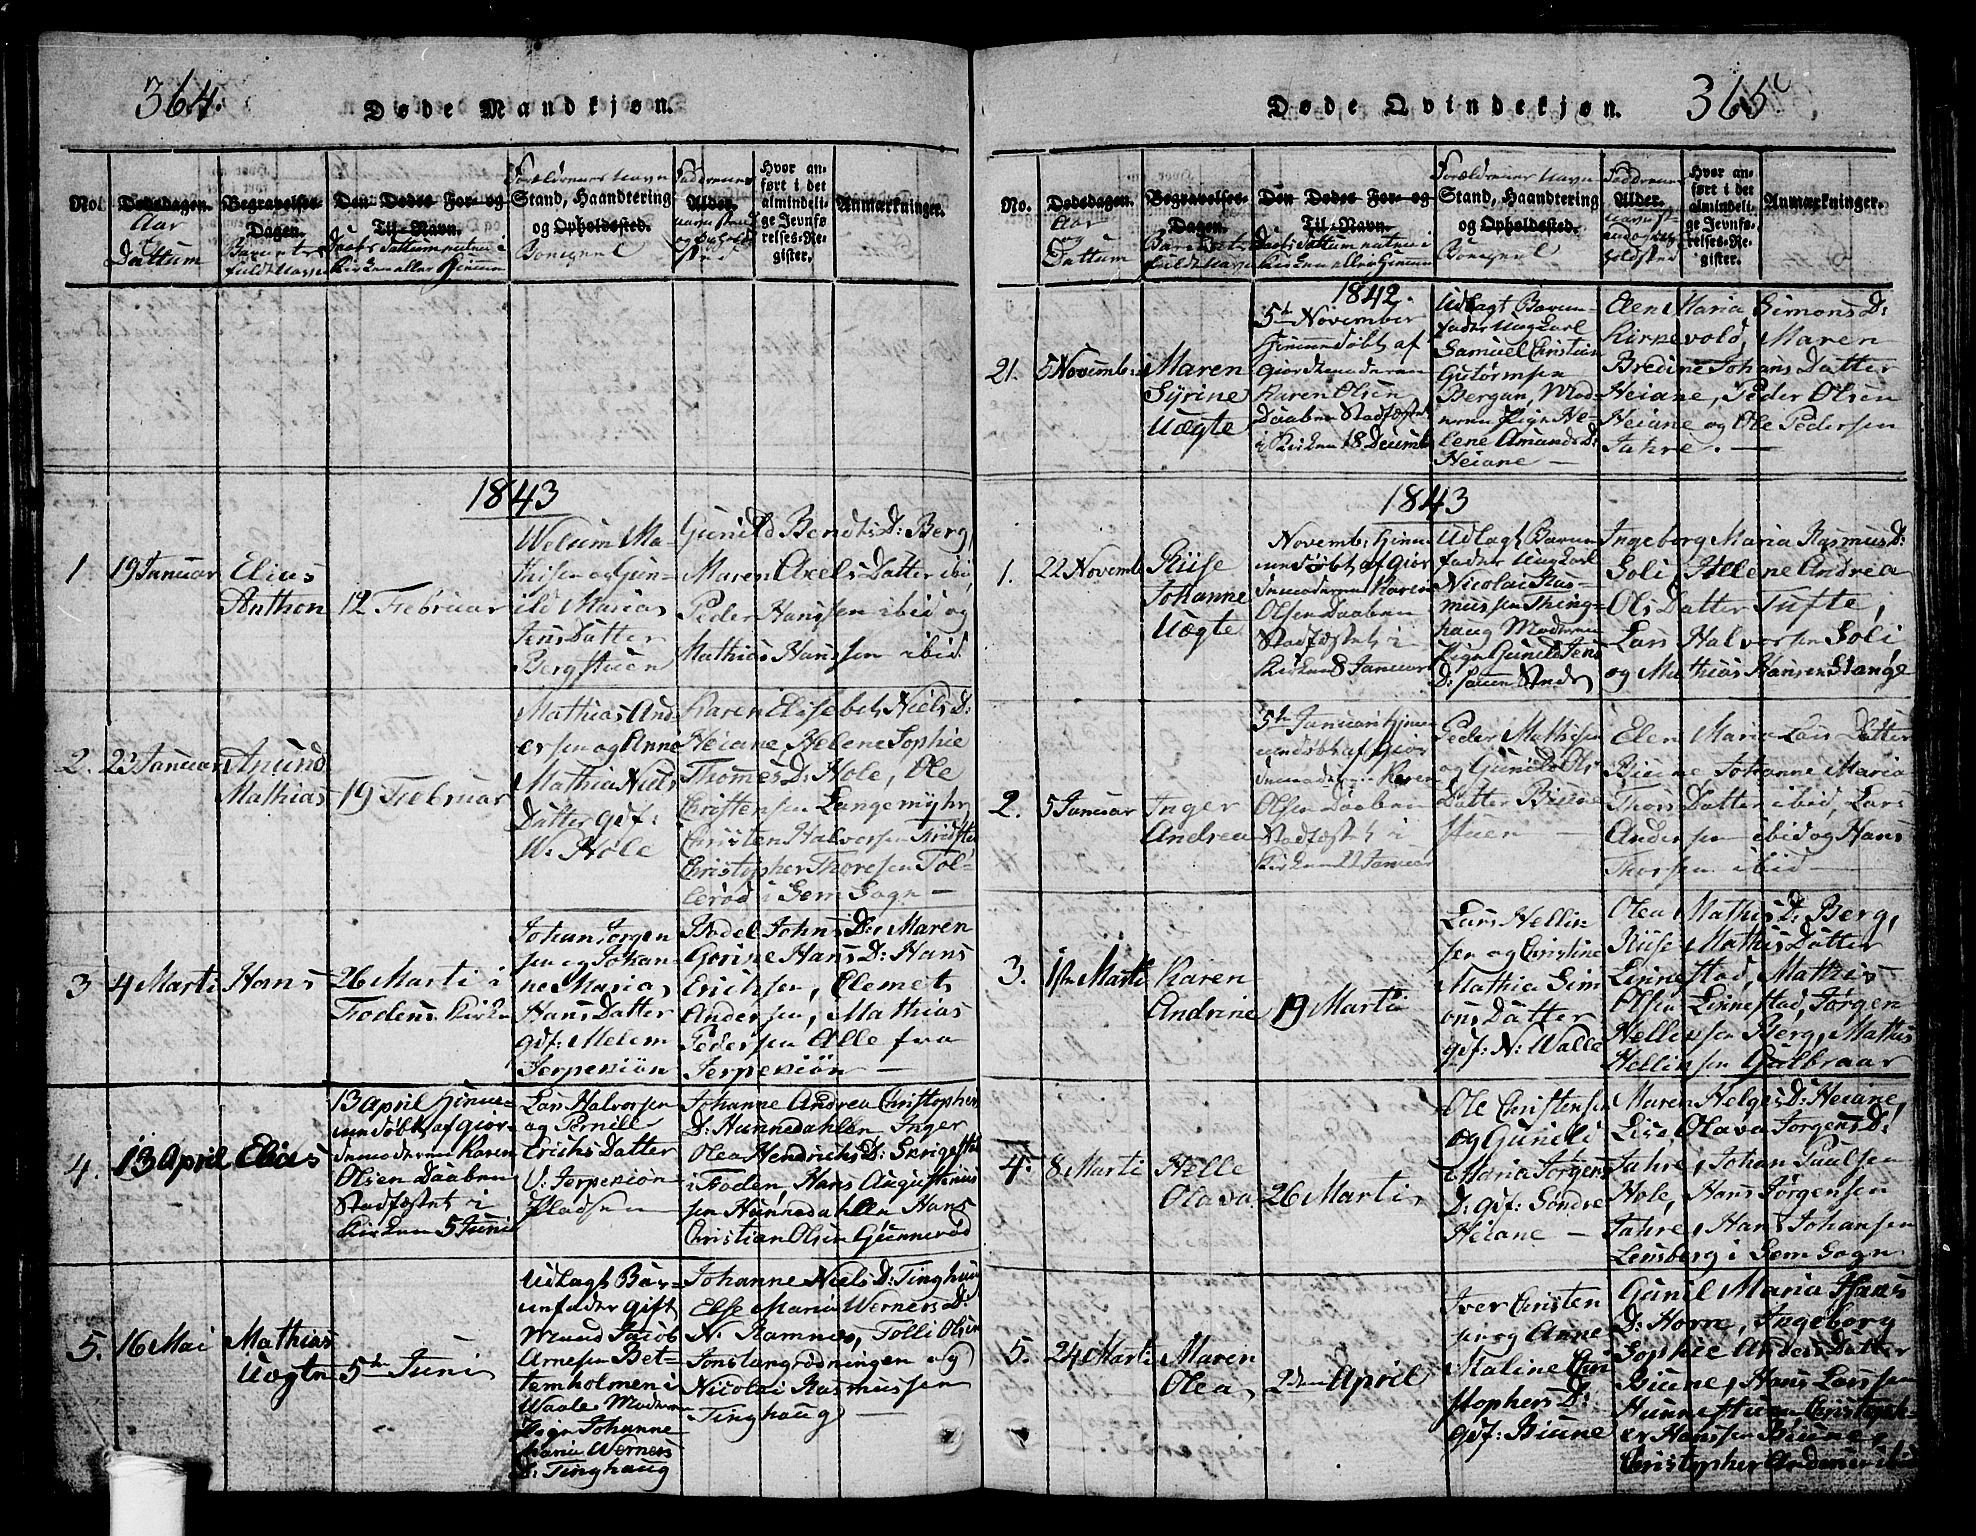 364.
Døde Mandkjøn.
No.
Dødsdagen.
Aar
Dattum
Begravelses-
Dagen.
Barnets
fulde Navn
Den Dødes For- og
Til-Navn.
Daabs Dattum enten i
Kirken eller Hiemme
Forældrenes Navn
Stand, Haandtering
og Opholdssted.
Alder.
og
Hvor an-
ført i det
almindeli-
ge Jevnfø-
relses-Re-
gister.
Anmærkninger.
1843
1
19 Januar
Elias
Anthon
12 Februar
Welum Ma-
thisen og Gun-
ild Maria
Jens Datter
Bergstuen
Gunild Bendts D: Berg,
Maren Axels Datter ibid,
Peder Hanssen ibid og
Mathias Hanssen ibid
2.
23 Januar
Amund
Mathias
19 Februar
Mathias And-
ersen og Anne
Mathia Niels
Datter gdf:
W. Hole
Karen Elisebet Niels D:
Heiane, Helene Sophie
Thomes D: Hole, Ole
Christensen Langemyhr,
Christen Halvorsen
Christopher Thoresen Tol-
lerød i Sem Sogn –
3
4 Marti
Hans
26 Marti i
Fodens Kirke
Johan Jørgen
sen og Johan-
ne Maria
Hans Datter
gdf: Melem
Jerpekiøn
Bodel Johns D: Maren
Gorine Hans D: Hans
Erichsen, Clemet
Andersen, Mathias
Pedersen Alle fra
Jerpekiøn –
4.
13 April
Elias
13 April Hiem-
mendøbt af Gior-
demoderen Karen
Olsen Daaben
Stadfæstet i
Kirken 5 Juni
Lars Halvorsen
og Pernille
Erichs Datter
U. Jerpekiøn
Pladsen
Johanne Andrea Christopher
D: Hunnedahlen Inger
Olea Hendrichs D:
i Foden, Hans Augustinus
sen Hunnedahlen Hans
Christian Olsen Gunnerød
5.
16 Mai
Mathias
Uægte
5te Juni
Udlagt Bar-
nefader gift
Mand Jacob
Arnesen Bet-
temholmen i
Waale Moderen
Pige Johanne
Maria Werners
D: Tinghaug
Johanne Niels D: Tinghaug
Else Maria Werners D:
N. Ramnes, Tolli Olsen
og
Nicolai Rasmussen
Tinghaug –
365
Døde Qvindekjøn.
No.
Dødsdagen.
Aar
Dattum
Begravelses-
Dagen.
Barnets
fulde Navn
Den Dødes For- og
Til-Navn.
Forældrenes Navn
Stand, Haandtering
og Opholdssted.
Alder.
Hvor an-
ført i det
almindeli-
ge Jevnfø-
relses-Re-
gister.
Anmærkninger.
1842.
21.
5 Novemb:
Maren
Syrine
Uægte
5te November
Hiemmedøbt af
Giordemoderen
Karen Olsen
Daaben Stadfæstet
i Kirken 18 Decemb
Udlagt Barne-
fader Ung Karl
Samuel Christian
Gutormsen
Bergan, Mod-
eren Pige He-
lene Amunds D:
Heiane –
Elen Maria Simons D:
Kirkevold, Maren
Bredine Johans Datter
Heiane, Peder Olsen
Heiane og Ole Pedersen
Jahre. –
1843
1.
22 Novemb
Riise
Johanne
Uægte
Novemb: Hiem-
mendøbt af Gior
demoderen Karen
Olsen Daaben
Stadfæstet i
Kirken 8 Januar
Udlagt Barne
fader Ung Karl
Nicolai Ras-
mussen Thing-
haug Moderen
Pige Gunild Jens
D:
Ingeborg Maria Rasmus D:
Soli, Helene Andrea
Ols Datter Tufte,
Lars Halvorsen Soli
og Mathias Hansen Stange
2.
5 Januar
Inger
Andrea
5te Januari Hiem
mendøbt af Gior
demoderen Karen
Olsen Daaben
Stadfæstet i
Kirken 22 Januar
Peder Mathisen
og Gunild Ols
Datter Biune
stuen –
Elen Maria Lars Datter
Biune Johanne Maria
Thors Datter ibid, Lars
Andersen ibid og Hans
Thorsen ibid –
3.
1ste Marti
Karen
Andrine
19 Marti
Lars Hellin-
sen og Christine
Mathia Sim
ons Datter
gdf: N: Walle
Olea Mathis D: Berg,
Riise Mathis Datter
Linnestad, Mathis
Olsen Linnestad, Jørgen
Hellinsen Berg, Mathis
Hellinsen Galbraar
4.
8 Marti
Helle
Olava
26 Marti
Ole Christensen
og Gunild
Maria Jørgens
D: gdf: Søndre
Heiane –
Maren Helges D: Heiane,
Lise Olava Jørgens D:
Jahre, Johan Paulsen
Hole, Hans Jørgensen
Jahre, Hans Johansen
Lensberg i Sem Sogn
5.
24 Marti
Maren
Olea
2den April
Iver Christen
sen og Anne
Maline Chri
stophers D:
gdf: Biune
Gunil Maria Hans
D: Horre, Ingeborg
Sophie Anders Datter
Biune, Hans Larssen
Hunnestuen, Christoph-
er Hanssen Biune,
Christopher Andersen ibid